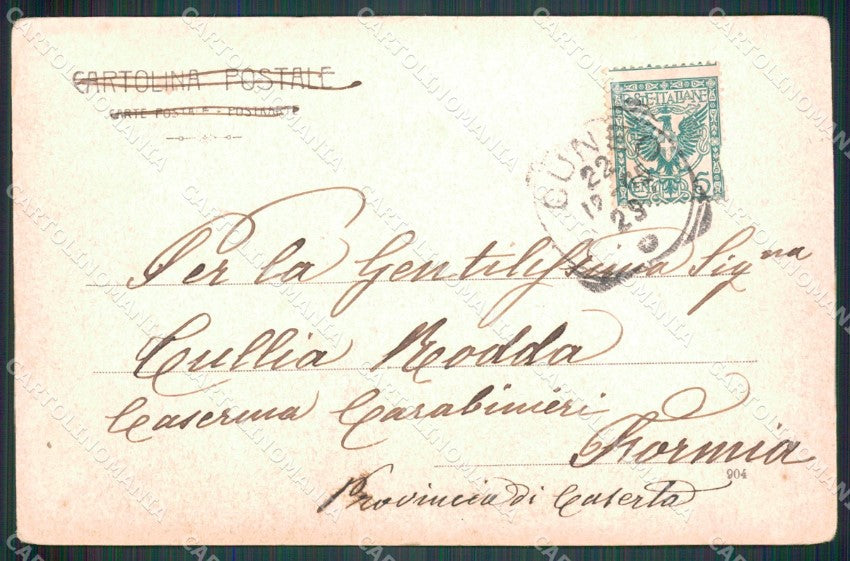 CARTOLINA POSTALE
CARTE POSTALE - POSTKARTE
POSTE ITALIANE
CENT. 5
CUNEO
22
19
29
Per la Gentilissima Signa
Tullia Rodda
Caserma Carabinieri
Formia
904
Provincia di Caserta
CARTOLINOMANIA